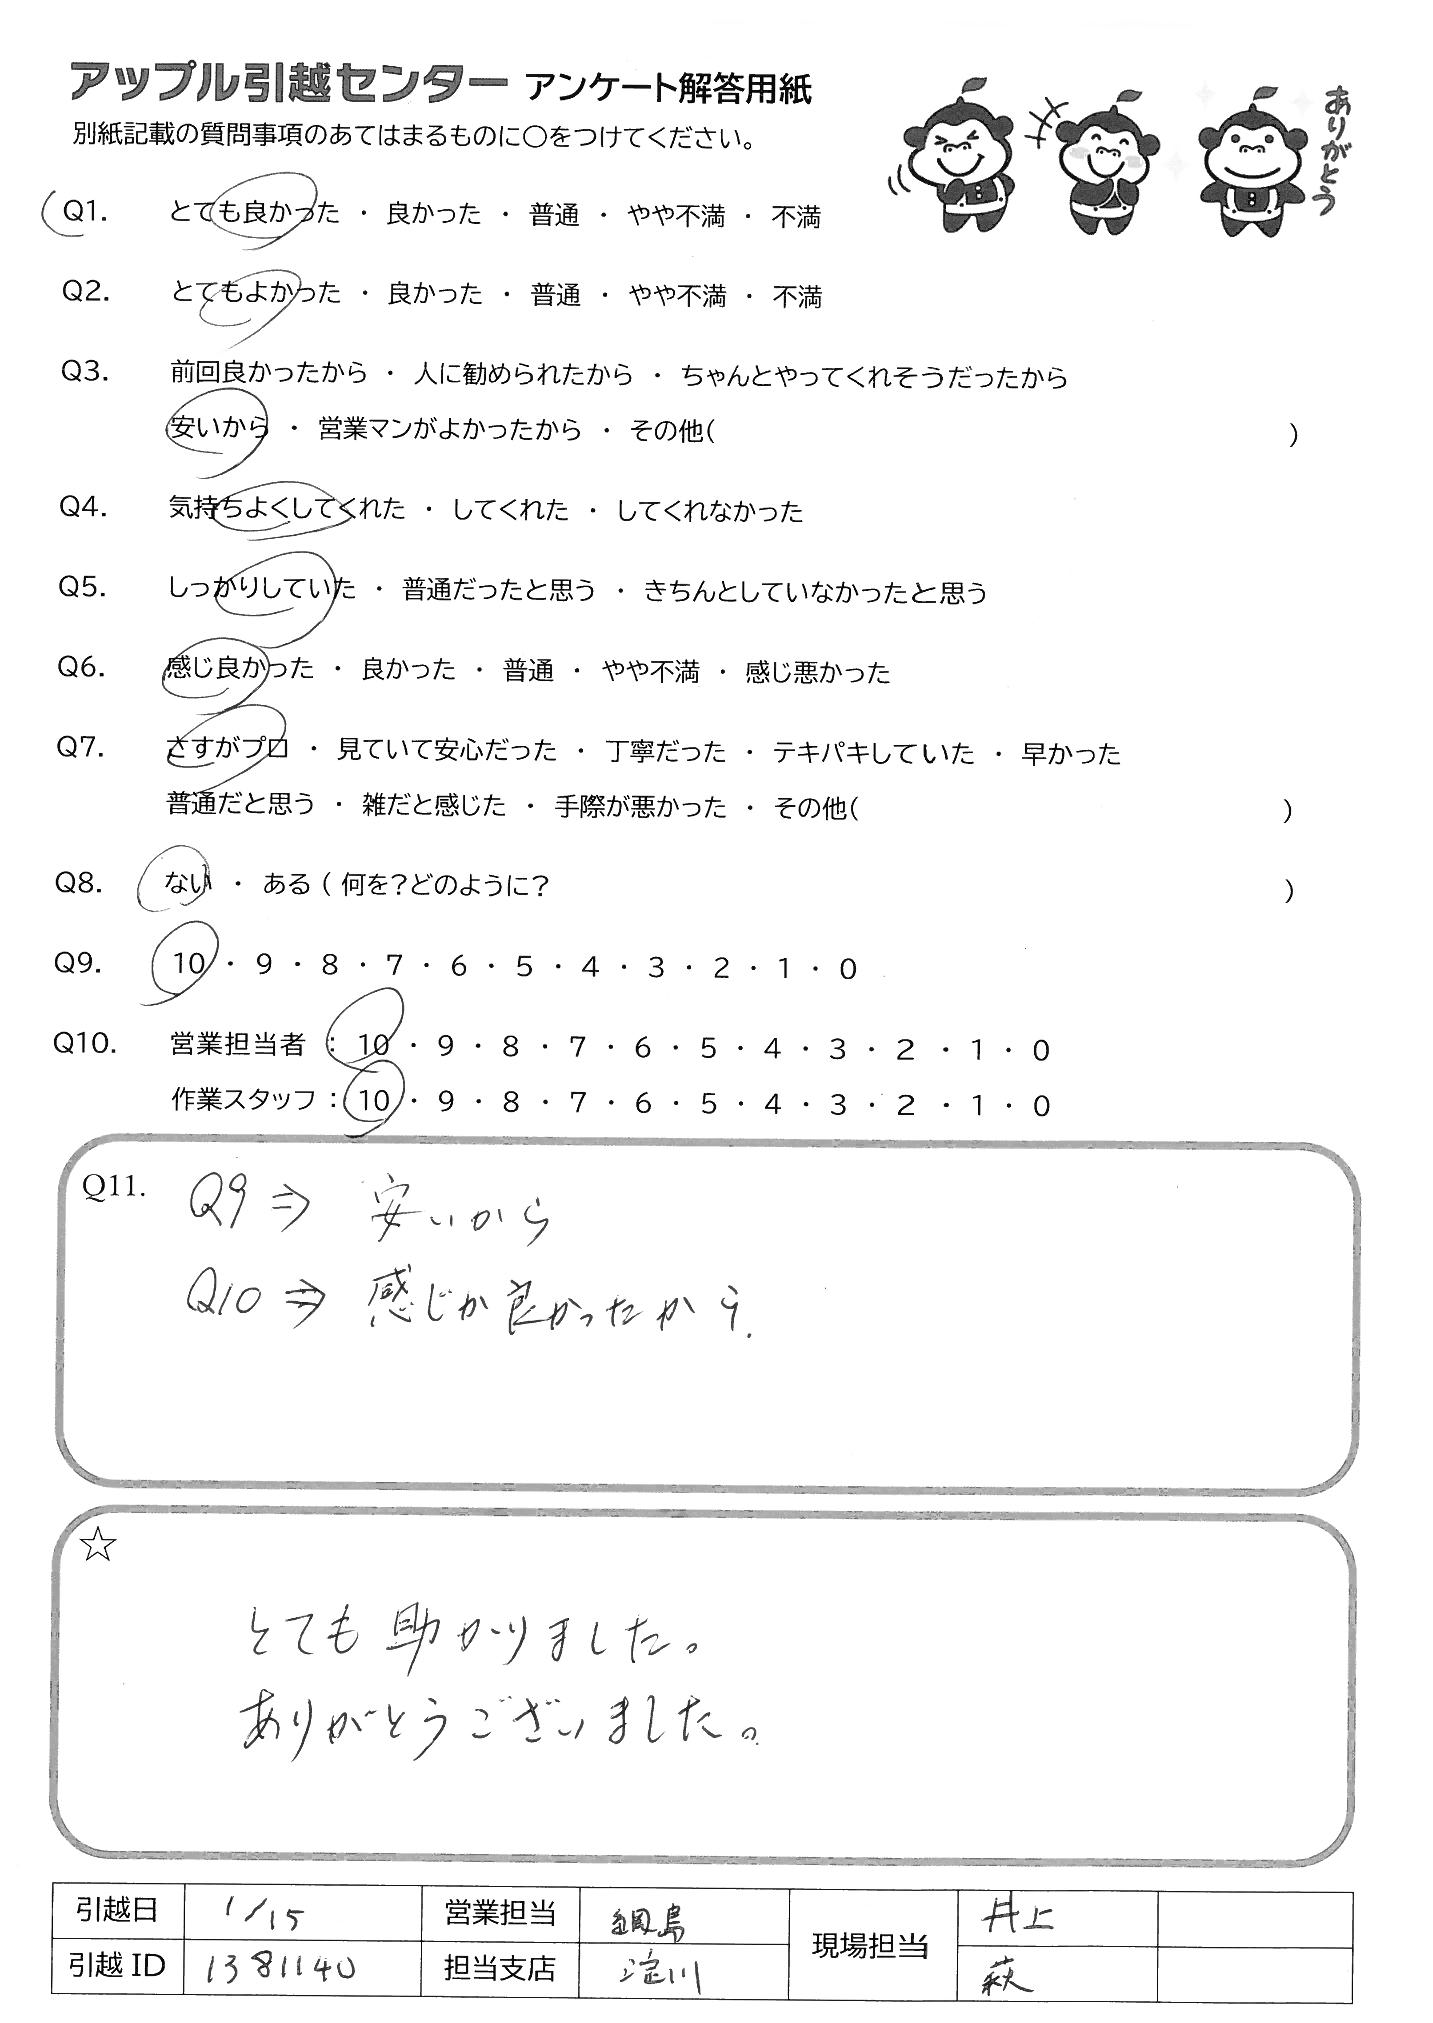 アップル引越センター アンケート解答用紙
別紙記載の質問事項のあてはまるものに〇をつけてください。
ありがとう
Q1. とても良かった ・ 良かった ・ 普通 ・ やや不満 ・ 不満
Q2. とてもよかった ・ 良かった ・ 普通 ・ やや不満 ・ 不満
Q3. 前回良かったから ・ 人に勧められたから ・ ちゃんとやってくれそうだったから
安いから ・ 営業マンがよかったから ・ その他( )
Q4. 気持ちよくしてくれた ・ してくれた ・ してくれなかった
Q5. しっかりしていた ・ 普通だったと思う ・ きちんとしていなかったと思う
Q6. 感じ良かった ・ 良かった ・ 普通 ・ やや不満 ・ 感じ悪かった
Q7. さすがプロ ・ 見ていて安心だった ・ 丁寧だった ・ テキパキしていた ・ 早かった
普通だと思う ・ 雑だと感じた ・ 手際が悪かった ・ その他( )
Q8. ない ・ ある ( 何を?どのように? )
Q9. 10 ・ 9 ・ 8 ・ 7 ・ 6 ・ 5 ・ 4 ・ 3 ・ 2 ・ 1 ・ 0
Q10. 営業担当者 : 10 ・ 9 ・ 8 ・ 7 ・ 6 ・ 5 ・ 4 ・ 3 ・ 2 ・ 1 ・ 0
作業スタッフ : 10 ・ 9 ・ 8 ・ 7 ・ 6 ・ 5 ・ 4 ・ 3 ・ 2 ・ 1 ・ 0
Q11. Q9 ⇒ 安いから
Q10 ⇒ 感じか良かったから.
☆
とても助かりました。
ありがとうございました。
引越日 1/15 営業担当 綱島 現場担当 井上
引越ID 1381140 担当支店 淀川 萩